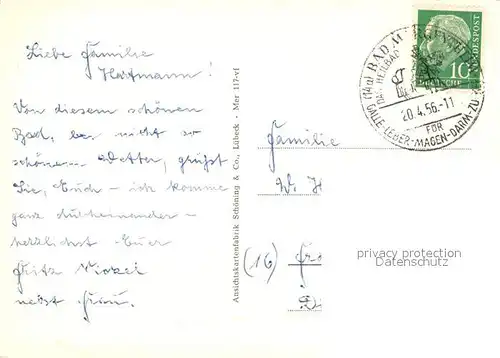 Liebe Familie
Hartmann!
Von diesem schönen
Bad, bei nicht so
schönem Wetter, grüßt
Sie, Euch - ich komme
ganz durcheinander -
herzlichst Euer
Fritz
nebst Frau.
Ansichtskartenfabrik Schöning & Co., Lübeck - Mer 117-vI
(14a) BAD MERGENTHEIM
DAS HEILBAD
20.4.56.-11
FÜR
GALLE-LEBER-MAGEN-DARM-ZUCKER
DEUTSCHE
BUNDESPOST
10
Familie
W. H
(16)
privacy protection
Datenschutz